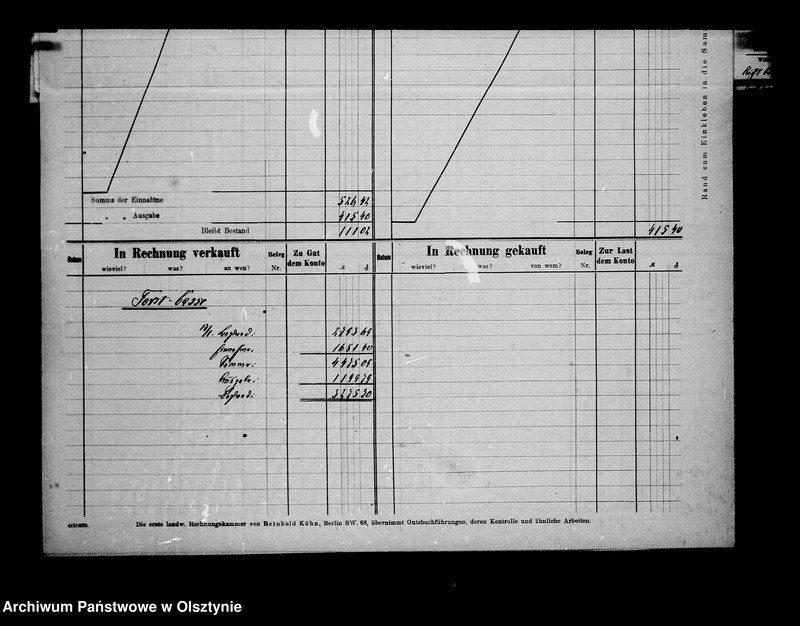 Rand zum Einkleben in die Sam
Summa der Einnahme 526 42
" " Ausgabe 415 40
Bleibt Bestand 111 02 415 40
Datum In Rechnung verkauft Beleg Nr. Zu Gut dem Konto M ₰ Datum In Rechnung gekauft Beleg Nr. Zur Last dem Konto M ₰
wieviel? was? an wen? wieviel? was? von wem?
Forst-Casse
Bestand:
Einnahme. 1681 40
Summa: 4475 09
Ausgabe: 1199 79
Bestand: 3275 30
Die erste landw. Rechnungskammer von Reinhold Kühn, Berlin SW. 68, übernimmt Gutsbuchführungen, deren Kontrolle und ähnliche Arbeiten.
Archiwum Państwowe w Olsztynie